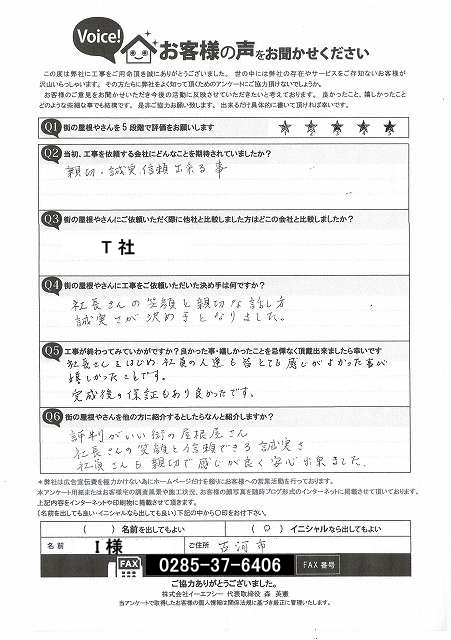 Voice!
お客様の声をお聞かせください
この度は弊社に工事をご用命頂き誠にありがとうございました。 世の中には弊社の存在やサービスをご存知ないお客様が
沢山いらっしゃいます。 その方たちに弊社をよく知って頂くためのアンケートにご協力頂けないでしょうか。
お客様のご意見をお聞かせいただき今後の活動に反映させていただきたいと考えております。 良かったこと、嬉しかったこと
どのような些細な事でも結構です。 是非ご協力お願い致します。 出来るだけ具体的に書いて頂ければ幸いです。
Q1 街の屋根やさんを5段階で評価をお願いします
1 2 3 4 5
Q2 当初、工事を依頼する会社にどんなことを期待されていましたか?
親切、誠実、信頼出来る事
Q3 街の屋根やさんにご依頼いただく際に他社と比較しました方はどこの会社と比較しましたか?
T 社
Q4 街の屋根やさんに工事をご依頼いただいた決め手は何ですか?
社長さんの笑顔と親切な話し方
誠実さが決め手となりました。
Q5 工事が終わってみていかがですか?良かった事・嬉しかったことを忌憚なく頂戴出来ましたら幸いです
社長さんをはじめ、社員の人達も皆とても感じがよかった事が
嬉しかったことです。
完成後の保証もあり良かったです。
Q6 街の屋根やさんを他の方に紹介するとしたらなんと紹介しますか?
評判がいい街の屋根屋さん
社長さんの笑顔と信頼できる誠実さ
社員さんも親切で感じが良く安心出来ました。
*弊社は広告宣伝費を極力かけない為にホームページだけを頼りにお客様への営業活動を行っております。
本アンケート用紙またはお客様宅の調査風景や施工状況、お客様の顔写真を随時ブログ形式のインターネットに掲載させて頂いております。
上記内容をインターネットや印刷物に掲載させて頂きます。
(名前を出しても良い・イニシャルなら出しても良い)下記の中から〇印をお付下さい。
( ) 名前を出してもよい ( 〇 ) イニシャルなら出してもよい
名 前 I 様 ご住所 古河市
FAX 0285-37-6406 FAX 番号
ご協力ありがとうございました。
株式会社イーエフシー 代表取締役 森 英憲
当アンケートで取得したお客様の個人情報は関係法規に基づき厳正に管理いたします。